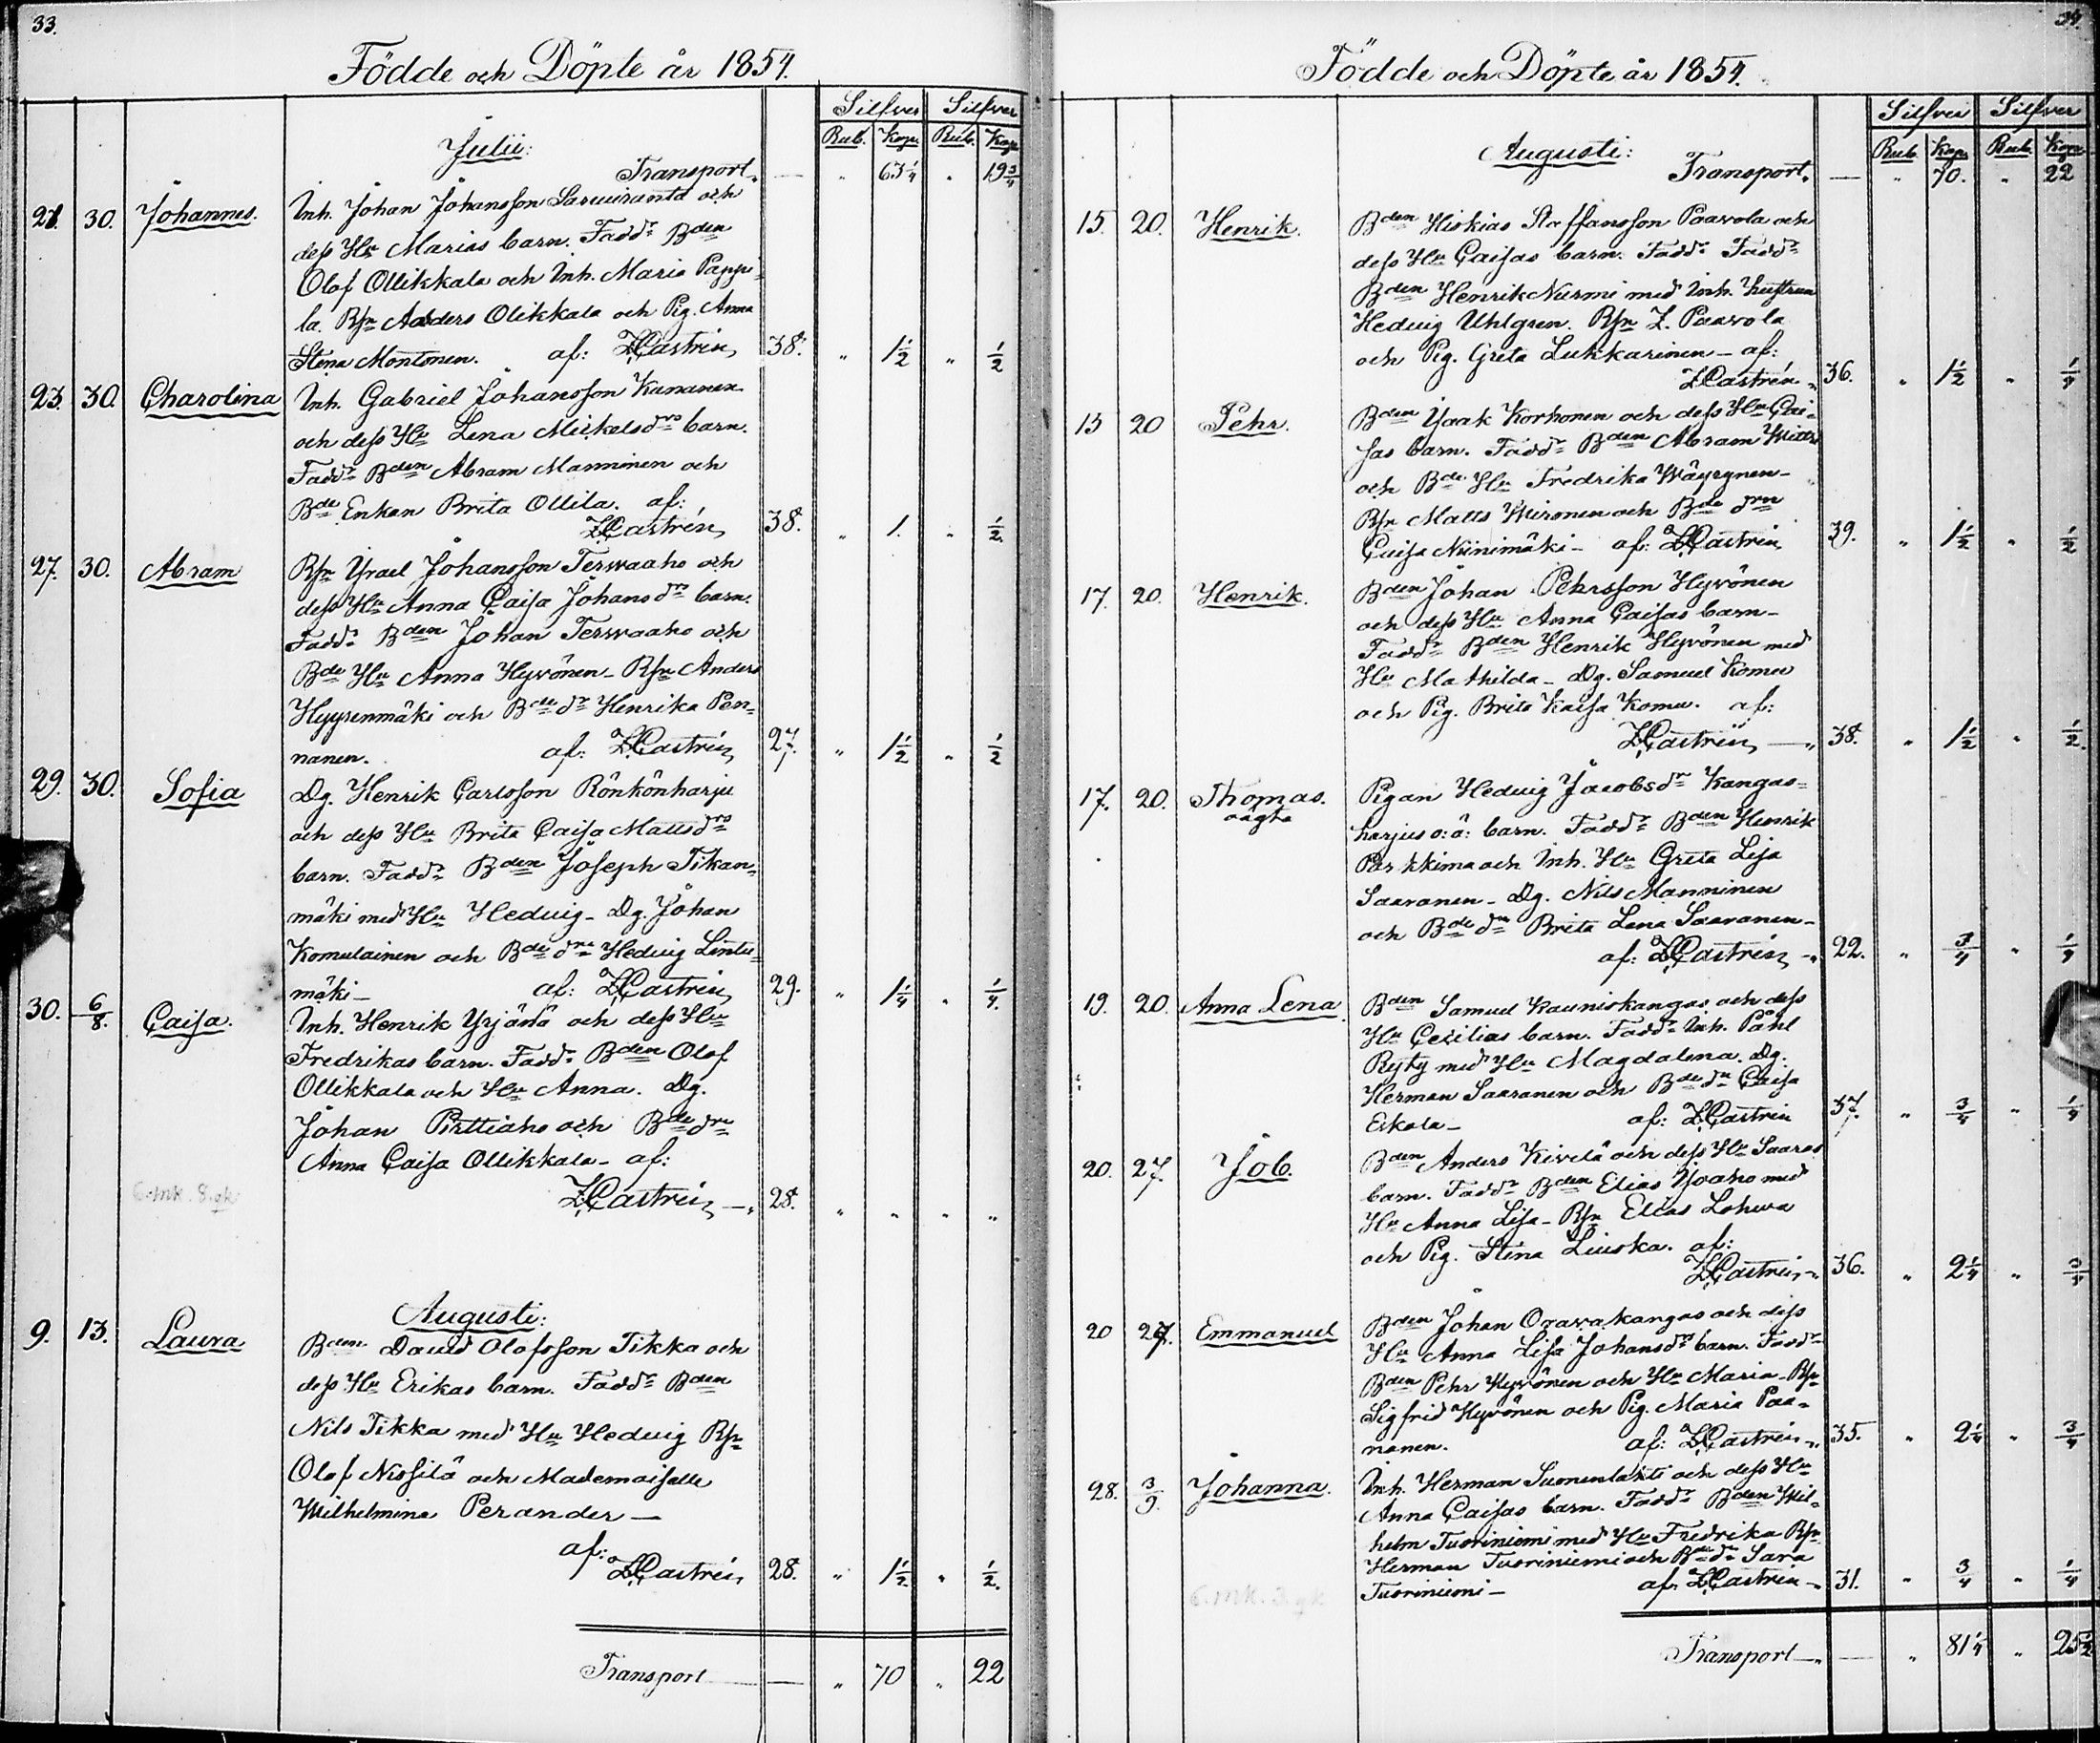 33.
Födde och Döpte år 1854.
Silfver Silfver
Rub. Kop. Rub. Kop.
Julii:
Transport. — " 63 1/4 " 19 3/4
21. 30. Johannes. Inh. Johan Johansson Saruiranta och
dess Hu Marias barn. Fadd:r Bden
Olof Ollikkala och Inh. Maria Pappi-
la. Bsr Anders Olikkala och Pig. Anna
Stina Montonen. af: ZCastrén 38. " 1 1/2 " 1/2
23. 30. Charolina Inh. Gabriel Johansson Kananen
och dess Hu Lena Mickelsdrs barn.
Fadd:r Bden Abram Manninen och
Bde Enkan Brita Ollila. af:
ZCastrén 38. " 1. " 1/2
27. 30. Abram Bsr Ysrael Johansson Terwaaho och
dess Hu Anna Caisa Johansdrs barn.
Fadd:r Bden Johan Terwaaho och
Bde Hu Anna Hyvönen - Bsr Anders
Hyysenmäki och Bde dr Henrika Pen-
nanen. af: ZCastrén 27. " 1 1/2 " 1/2
29. 30. Sofia Dg. Henrik Carlsson Rönkönharju
och dess Hu Brita Caisa Mattsdrs
barn. Fadd:r Bden Joseph Tikan-
mäki med Hu Hedvig - Dg. Johan
Komulainen och Bde drn Hedvig Lintu-
mäki - af: ZCastrén 29. " 1 1/4 " 1/4.
30. 6/8. Caisa. Inh. Henrik Yrjänä och dess Hu
Fredrikas barn. Fadd:r Bden Olof
Ollikkala och Hu Anna. Dg.
Johan Pirttiaho och Bde drn
Anna Caisa Ollikkala - af:
6. mk. 8. qk.
ZCastrén —" 28. " " " "
Augusti:
9. 13. Laura Bden David Olofsson Tikka och
dess Hu Erikas barn. Fadd:r Bden
Nils Tikka med Hu Hedvig Bsr
Olof Nissilä och Mademoiselle
Wilhelmina Perander —
af:
ZCastrén 28. " 1 1/2. " 1/2.
Transport — " 70 " 22
34.
Födde och Döpte år 1854.
Silfver Silfver
Rub. Kop. Rub. Kop.
Augusti:
Transport. — " 70. " 22
15. 20. Henrik. Bden Hiskias Staffansson Paavola och
dess Hu Caisas barn. Fadd:r Fadd:r
Bden Henrik Nurmi med Inh. hustrun
Hedvig Uhlgren. Bsr Z. Paavola
och Pig. Greta Lukkarinen - af:
ZCastrén " 36. " 1 1/2 " 1/4
15 20 Pehr. Bden Ysaak Korhonen och dess Hu Cai-
sas barn. Fadd:r Bden Abram
och Bde Hu Fredrika Wäyrynen -
Bsr Matts Mironen och Bde drn
Caisa Niinimäki - af: ZCastrén 39. " 1 1/2 " 1/2
17. 20. Henrik. Bden Johan Pehrsson Hyvönen
och dess Hu Anna Caisas barn -
Fadd:r Bden Henrik Hyvönen med
Hu Mathilda - Dg. Samuel Komu
och Pig. Brita Kaisa Komu. af:
ZCastrén —" 38. " 1 1/2 " 1/2.
17. 20. Thomas. Pigan Hedvig Jacobsdr Kangas-
oägta harjus o: ä: barn. Fadd:r Bden Henrik
Parkkima och Inh. Hu Greta Lisa
Saaranen - Dg. Nils Manninen
och Bde drn Brita Lena Saaranen -
af: ZCastrén " 22. " 3/4 " 1/4
19. 20. Anna Lena Bden Samuel Kauniskangas och dess
Hu Cecilias barn. Fadd:r Inh. Påhl
Ryty med Hu Magdalena. Dg.
Herman Saaranen och Bde drn Caisa
Eskola - af: ZCastrén 37. " 3/4 " 1/4
20. 27. Job. Bden Anders Kivelä och dess Hu Saaras
barn. Fadd:r Bden Elias Ysoaho med
Hu Anna Lisa - Bsr Elias Lohva
och Pig. Stina Liuska. af:
ZCastrén " 36. " 2 1/4 " 3/4
20 27. Emmanuel Bden Johan Oravakangas och dess
Hu Anna Lisa Johansdrs barn. Fadd:r
Bden Pehr Hyvönen och Hu Maria - Bsr
Sigfrid Hyvönen och Pig. Maria Paa-
nanen. af: ZCastrén " 35. " 2 1/4 " 3/4
28. 3/9. Johanna. Inh. Herman Suonenlahti och dess Hu
Anna Caisas barn. Fadd:r Bden Wil-
helm Tuoriniemi med Hu Fredrika Bsr
Herman Tuoriniemi och Bde dr Sara
Tuoriniemi - af: ZCastrén " 31. " 3/4 " 1/4
6. mk. 3. qk
Transport —" — " 81 1/4 " 25 1/2